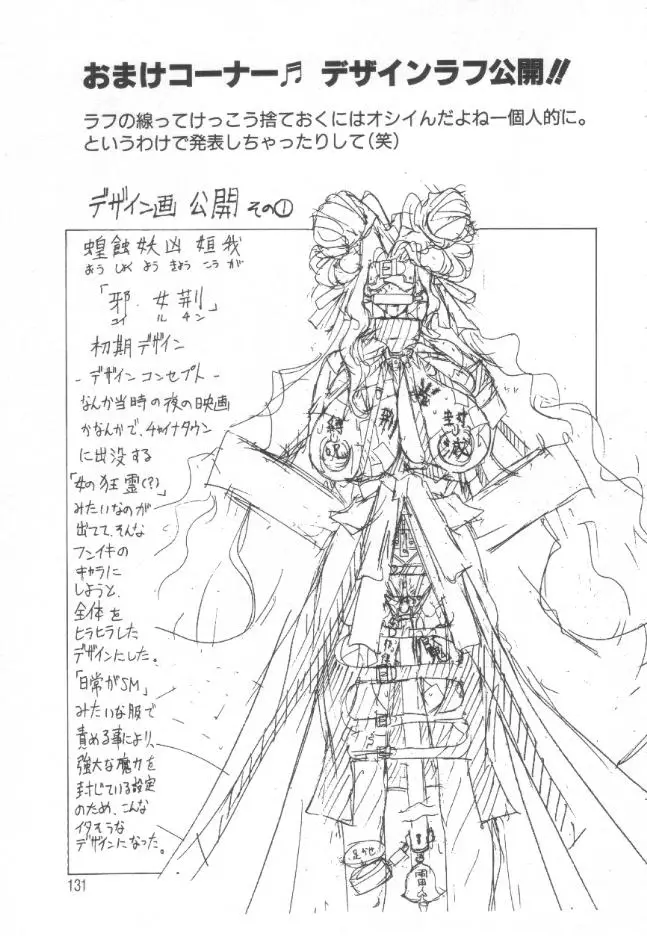 おまけコーナー♬ デザインラフ公開!!
ラフの線ってけっこう捨ておくにはオシイんだよねー個人的に。
というわけで発表しちゃったりして(笑)
デザイン画 公開 その①
蝗蝕妖凶 姮我
おう しょく よう きょう こう が
「邪 女 荆」
ユイ ル チン
初期デザイン
- デザインコンセプト -
なんか当時の夜の映画
かなんかで、チャイナタウン
に出没する
「女の狂霊(?)」
みたいなのが
出てて、そんな
フンイキの
キャラに
しようと、
全体を
ヒラヒラした
デザインにした。
「日常がSM」
みたいな服で
責める事により、
強大な魔力を
封じている設定
のため、こんな
イタそうな
デザインになった。
縛
呪
荆
封
滅
鬼
足かせ
131